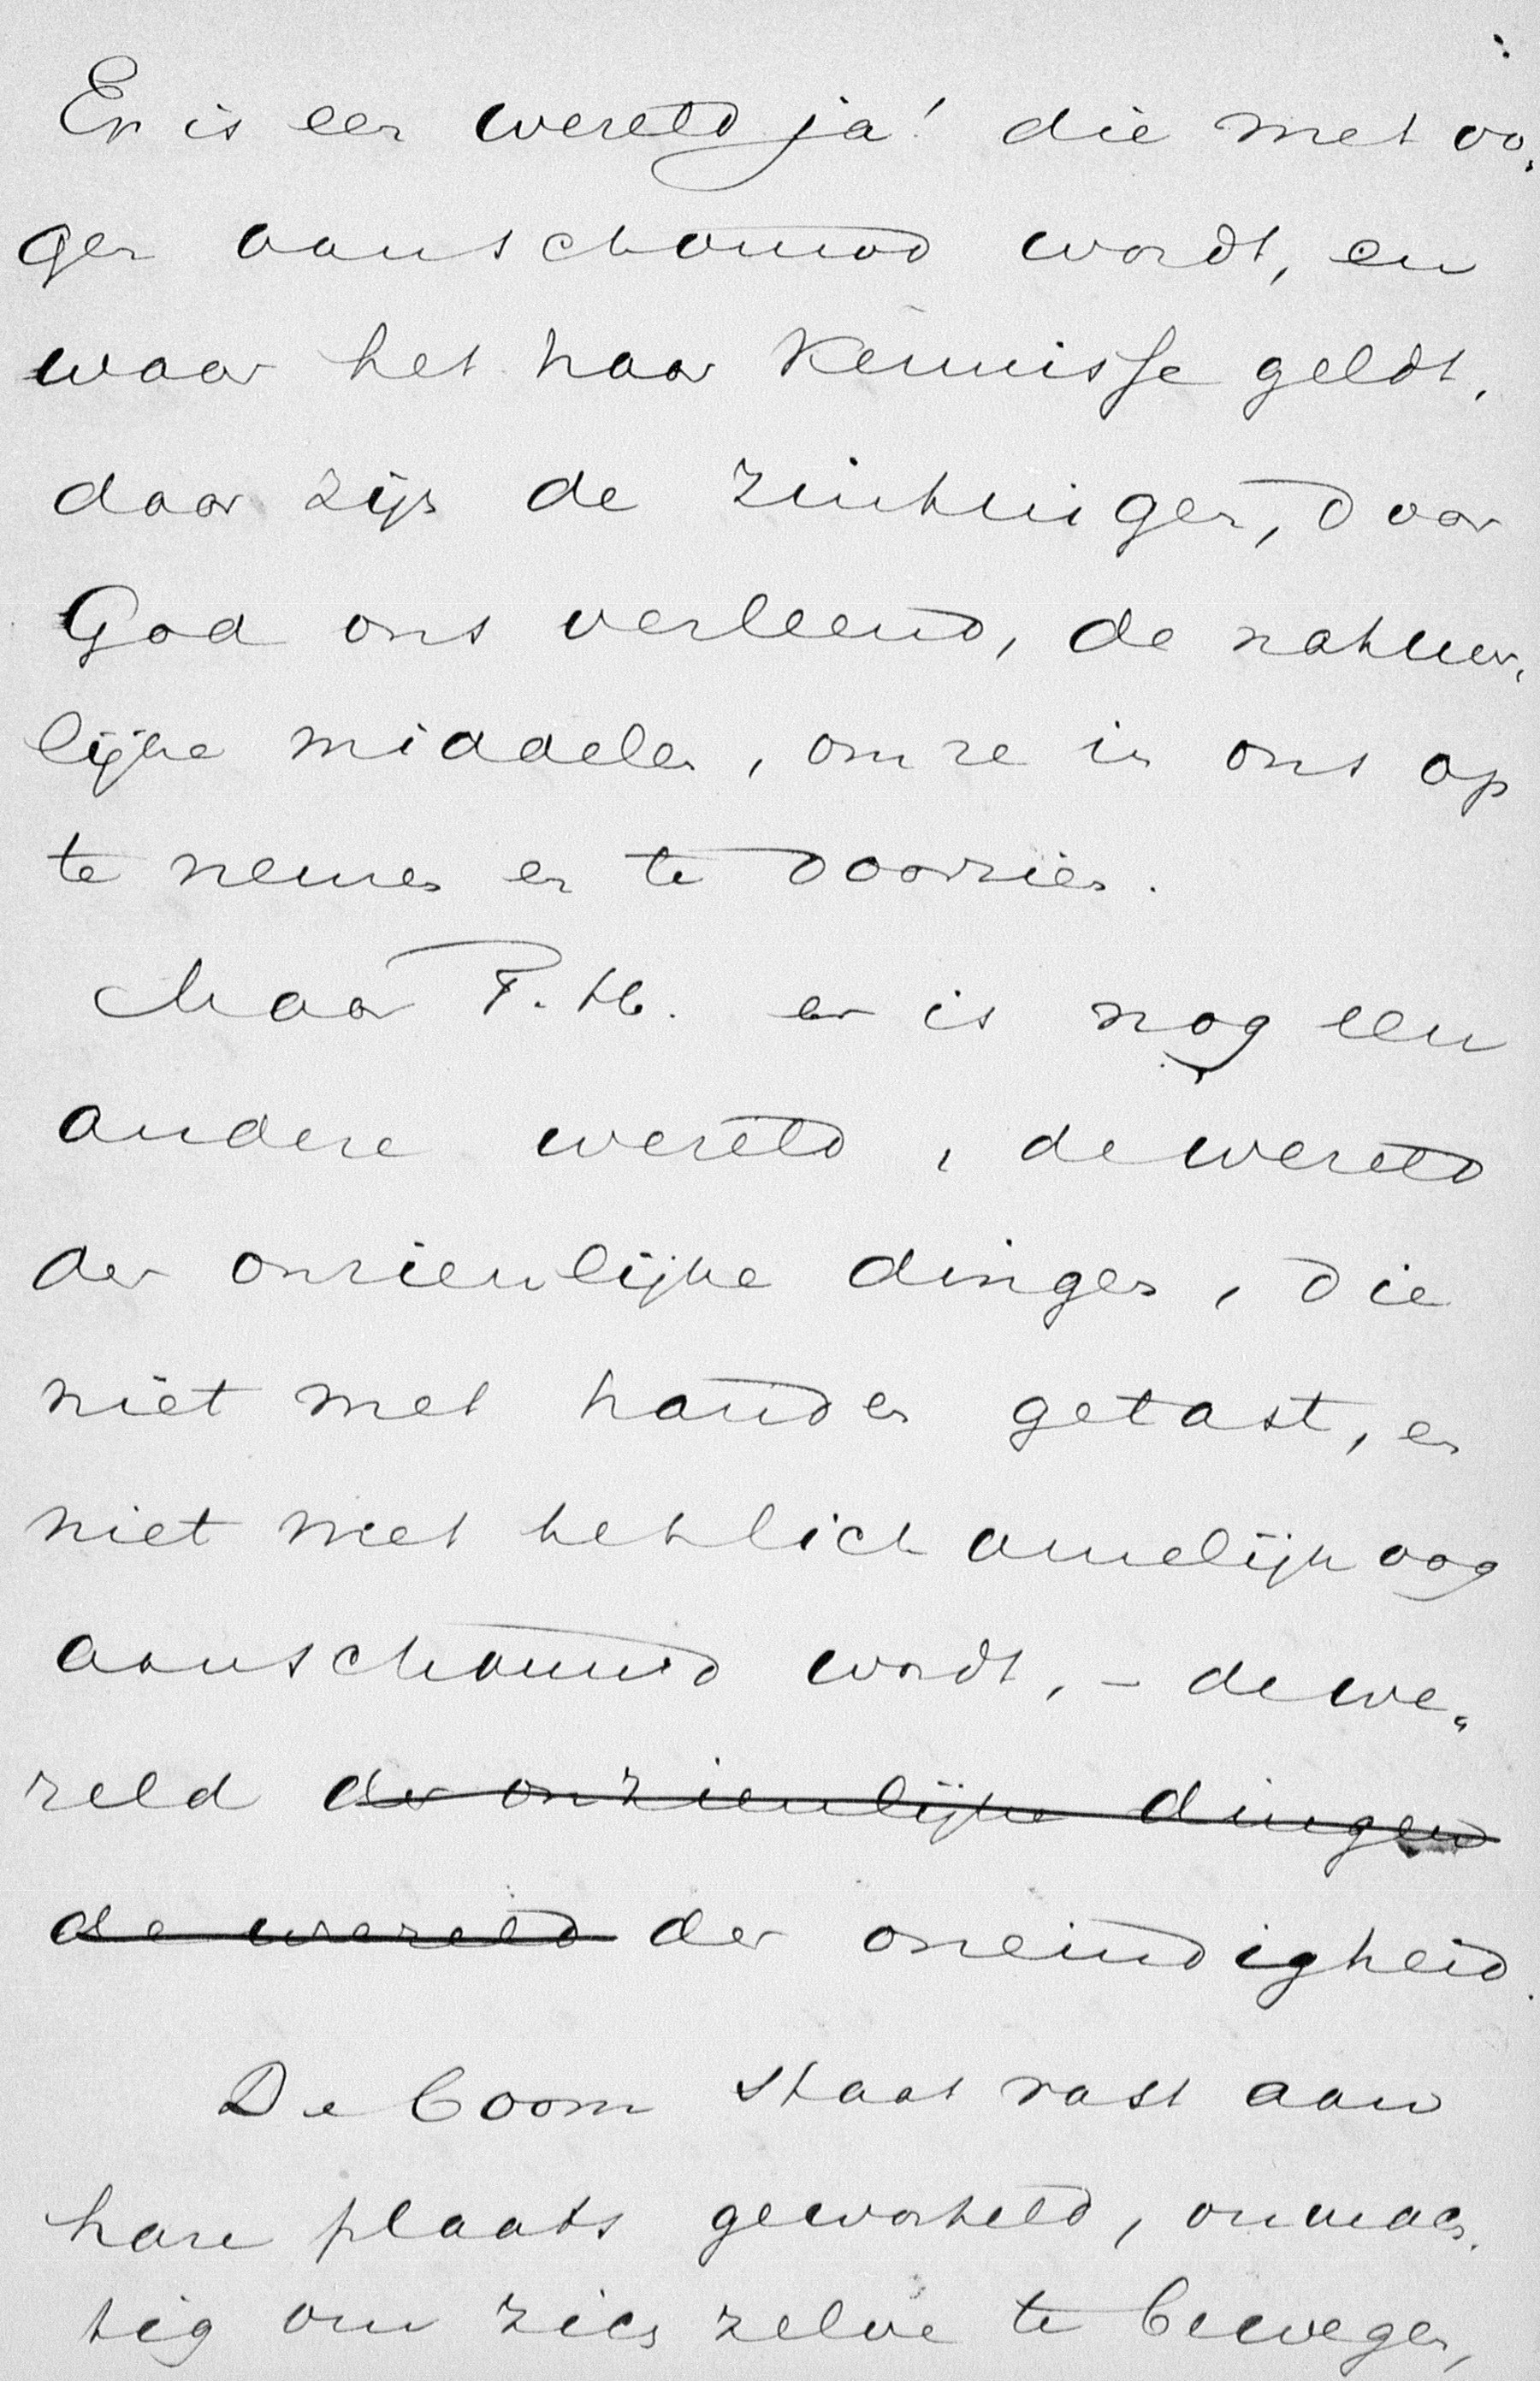 Er is een wereld ja! die met oo-
gen aanschouwd wordt, en
waar het haar kennisse geldt,
daar zijn de zintuigen, door
God ons verleend, de natuur-
lijke middelen, om ze in ons op
te nemen en te doorzien.
Maar T. H. er is nog een
andere wereld, de wereld
der onzienlijke dingen, die
niet met handen getast, en
niet met het lichamelijk oog
aanschouwd wordt, – de we-
reld der onzienlijke dingen
de wereld der oneindigheid.
De boom staat vast aan
hare plaats geworteld, onmach-
tig om zich zelve te bewegen,